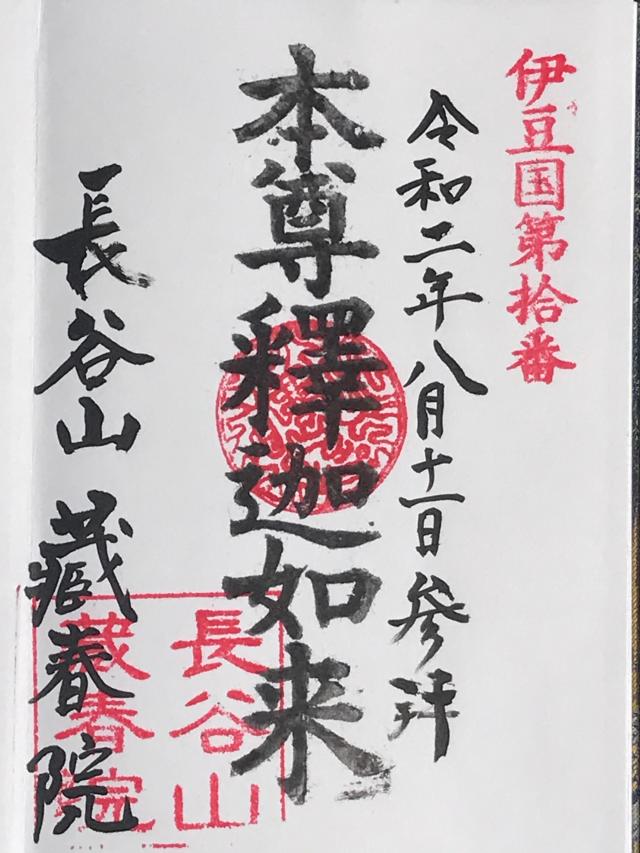 伊豆国第拾番
令和二年八月十一日 參拝
本尊釋迦如来
長谷山 藏春院
長谷山
蔵春院